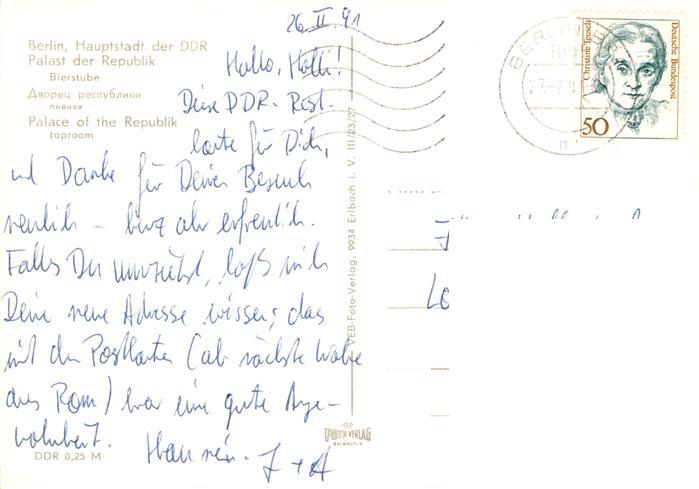 26.II.91
Berlin, Hauptstadt der DDR
Palast der Republik
Bierstube
Дворец республики
пивная
Palace of the Republik
taproom
Hallo, Holli!
Diese DDR-Rest-
karte für Dich,
und Danke für Deinen Besuch
neulich – kurz aber erfreulich.
Falls Du umziehst, laß mich
Deine neue Adresse wissen; das
mit den Postkarten (ab nächste Woche
aus Rom) war eine gute Ange-
wohnheit.
J + A
DDR 0,25 M
VEB-Foto-Verlag, 9934 Erlbach i. V. III/23/27
FOTO VERLAG
ERLBACH V.
BERLIN
Christine Teusch
Deutsche Bundespost
50